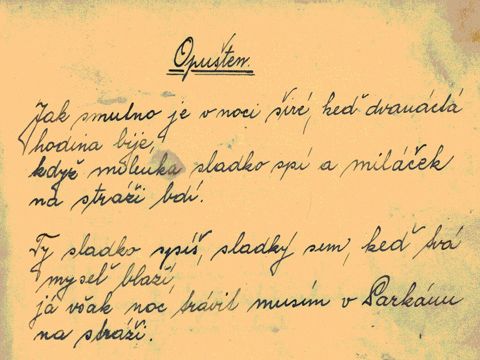 Opušten.
Jak smutno je v noci širé, keď dvanáctá
hodina bije,
když milenka sladko spí a miláček
na stráži bdí.
Ty sladko spíš, sladký sen, keď tvá
mysel blaží,
já však noc trávit musím v Parkánu
na stráži.